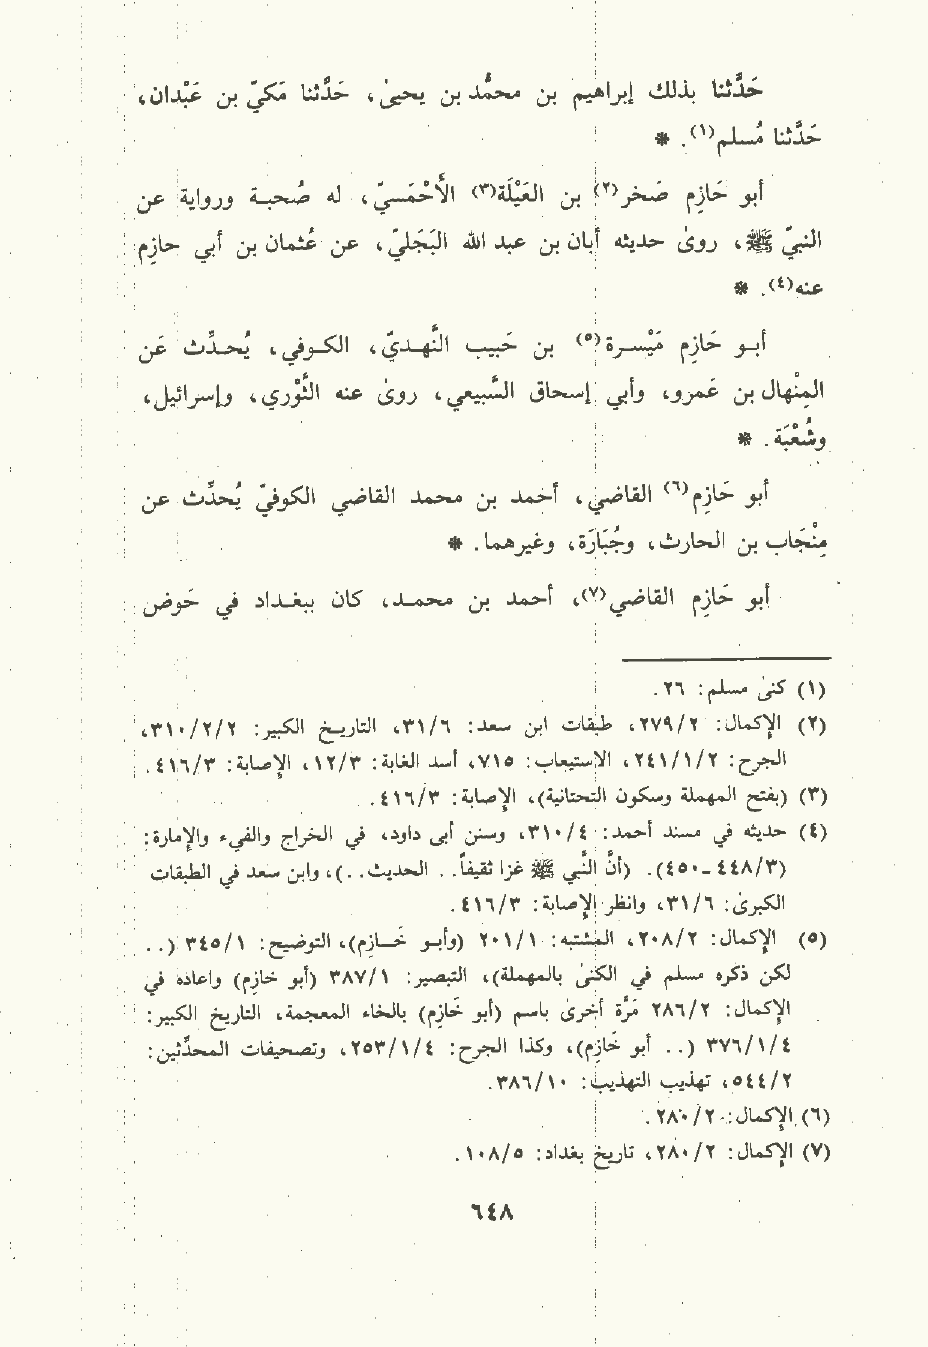 حَدَّثنا بذلك إبراهيم بن محمُّد بن يحيىٰ، حَدَّثنا مَكيّ بن عَبْدان،
حَدَّثنا مُسلم(١). *
أبو حَازِم صَخر(٢) بن العَيْلَة(٣) الأَحْمَسيّ، له صُحبة ورواية عن
النبيّ ﷺ، روىٰ حديثه أبان بن عبد الله البَجَليّ، عن عُثمان بن أبي حازِم
عنه(٤). *
أبو حَازِم مَيْسرة(٥) بن حَبيب النَّهديّ، الكوفي، يُحدِّث عَن
المِنْهال بن عَمرو، وأبي إسحاق السَّبيعي، روىٰ عنه الثَّوْري، وإسرائيل،
وشُعْبَة. *
أبو حَازِم(٦) القاضي، أحمد بن محمد القاضي الكوفيّ يُحدِّث عن
مِنْجَاب بن الحارث، وجُبَارَة، وغيرهما. *
أبو حَازِم القاضي(٧)، أحمد بن محمد، كان ببغداد في حَوض
(١) كنىٰ مسلم: ٢٦.
(٢) الإكمال: ٢/٢٧٩، طبقات ابن سعد: ٦/٣١، التاريخ الكبير: ٢/٢/٣١٠،
الجرح: ٢/١/٢٤١، الاستيعاب: ٧١٥، أسد الغابة: ٣/١٢، الإصابة: ٣/٤١٦.
(٣) (بفتح المهملة وسكون التحتانية)، الإصابة: ٣/٤١٦.
(٤) حديثه في مسند أحمد: ٤/٣١٠، وسنن أبى داود، في الخراج والفيء والإمارة:
(٣/٤٤٨ـ٤٥٠). (أنَّ النَّبي ﷺ غزا ثقيفاً. . الحديث. .)، وابن سعد في الطبقات
الكبرىٰ: ٦/٣١، وانظر الإصابة: ٣/٤١٦.
(٥) الإكمال: ٢/٢٠٨، المشتبه: ١/٢٠١ (وأبو خَازِم)، التوضيح: ١/٣٤٥ (. .
لكن ذكره مسلم في الكنىٰ بالمهملة)، التبصير: ١/٣٨٧ (أبو خازِم) واعاده في
الإكمال: ٢/٢٨٦ مَرَّة أخرىٰ باسم (أبو خَازِم) بالخاء المعجمة، التاريخ الكبير:
٤/١/٣٧٦ (. . أبو خَازِم)، وكذا الجرح: ٤/١/٢٥٣، وتصحيفات المحدِّثين:
٢/٥٤٤، تهذيب التهذيب: ١٠/٣٨٦.
(٦) الإكمال: ٢/٢٨٠.
(٧) الإكمال: ٢/٢٨٠، تاريخ بغداد: ٥/١٠٨.
٦٤٨